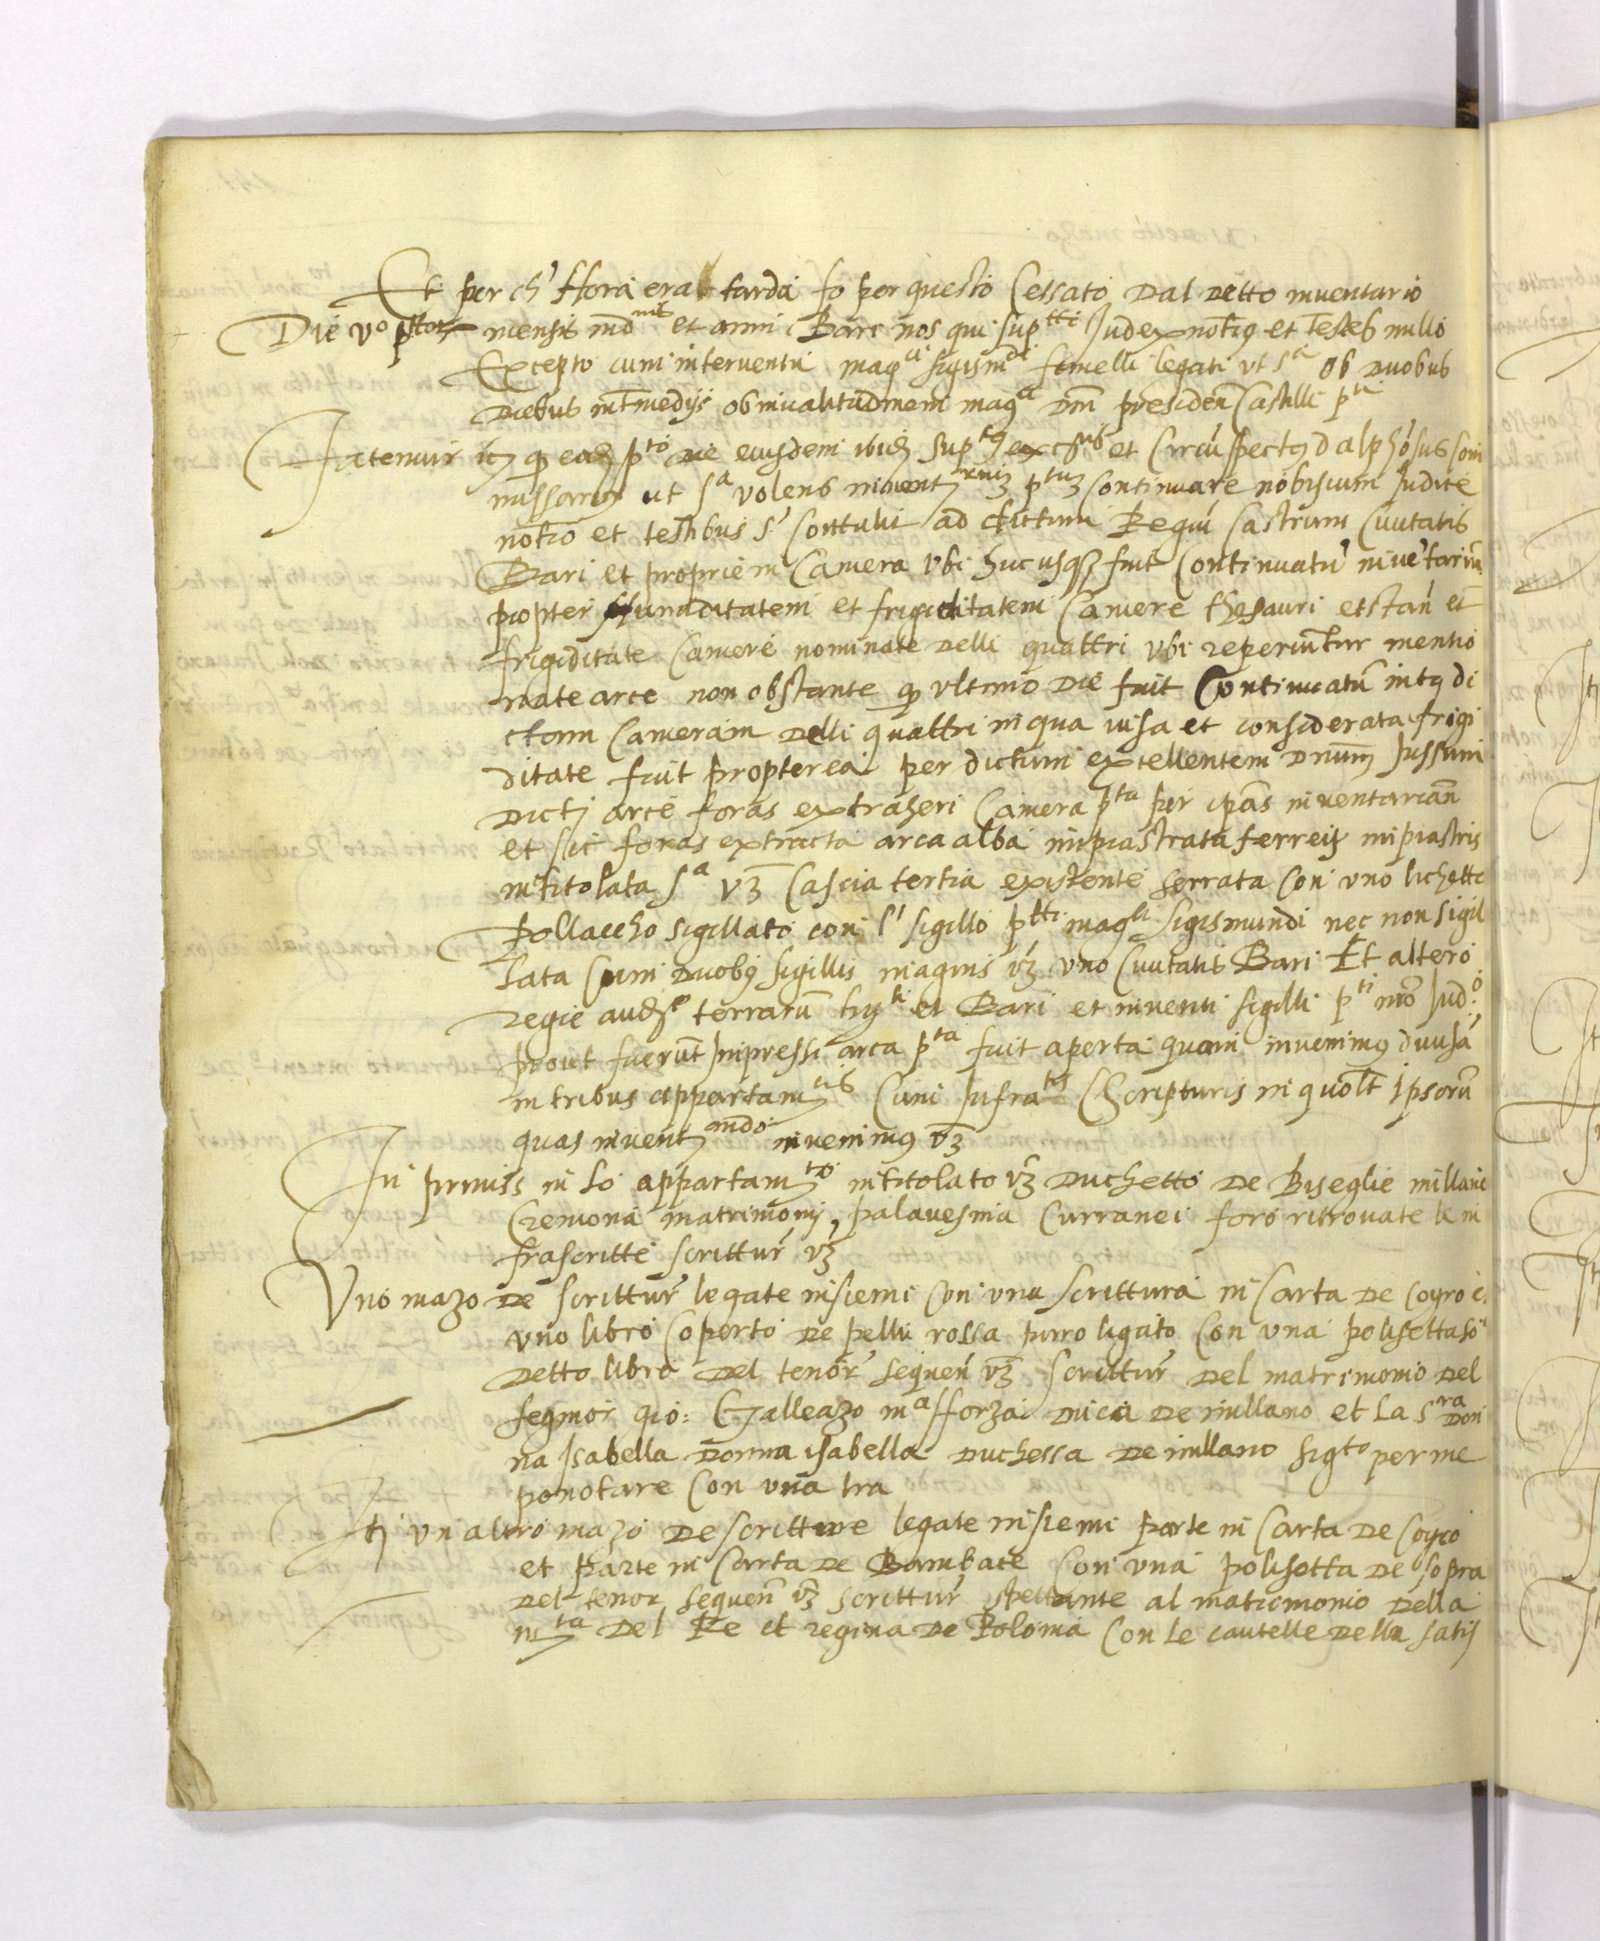 Et per ch' l'hora era tarda fo per questo Cessato dal detto inventario
Die vo mensis et anni Bari nos qui sup.tti Judex not.s et Testes nullo
Excepto cum interventu mag.ci sigism.di legati ut s.a ob duobus
diebus intmedijs ob invalitudinem mag.ci dni presiden Castelli p.ti
Fatemur eiusdem ibid et Circuspectus d alphosus Com
missarius ut s.a volens p.tum Continuare nobiscum Judice
notio et testibus s' contulit ad dictum Regiu Castrum Civitatis
Bari et proprie in Camera ubi hucusq fuit Continuatu inventariu
propter humiditatem et frigiditatem Camere thesauri et
frigiditate Camere nominate delli quattri ubi reperiuntur mentio
nate arce non obstante q ultimo die fuit Continuatu intus di
ctam Cameram delli quattri in qua visa et considerata frigi
ditate fuit propterea per dictum excellentem dnum Jussum
dicte arce foras extraheri Camera p.ta per inventarian
et sic foras extracta arca alba inpiastrata ferreis inpiastris
intitolata s.a vz Cascia tertia existente serrata Con uno lichetto
Pollaccho sigillato con l' sigillo p.tti mag.ci Sigismundi nec non sigil
lata Cum duobus sigillis magnis vz uno Civitatis Bari Et altero
regie terraru et Bari et inventi sigilli p.ti
prout fuerut Inpressi arca p.ta fuit aperta quam invenimus divisa
in tribus appartam.tis Cum Infra.tis Scripturis in quolt Ipsoru
quas invent.ando invenimus vz
In primis in lo appartam.to intitolato vz Duchetto de Biseglie millane
Cremona matrimonij, palavesina Curranei foro ritrovate le in
frascritte scrittur' vz
Uno mazo de scrittur' legate insiemi Con una scrittura in Carta de Coyro e
uno libro Coperto de pelli rossa ligato Con una polisetta so'
detto libro del tenor' sequen vz Scrittur' del matrimonio del
segnor gio: Galleazo m.a sforza duca de millano et la s.ra Don
na Isabella donna isabella duchessa de millano sig.to per me
ponotare Con una lra
It un altro mazo de scritture legate insiemi parte in Carta de Coyro
et parte in Carta de Bambace Con una polisetta de sopra
del tenor sequen vz scrittur' spettante al matrimonio della
m.ta del Re et regina de Polonia Con le cautelle della satis